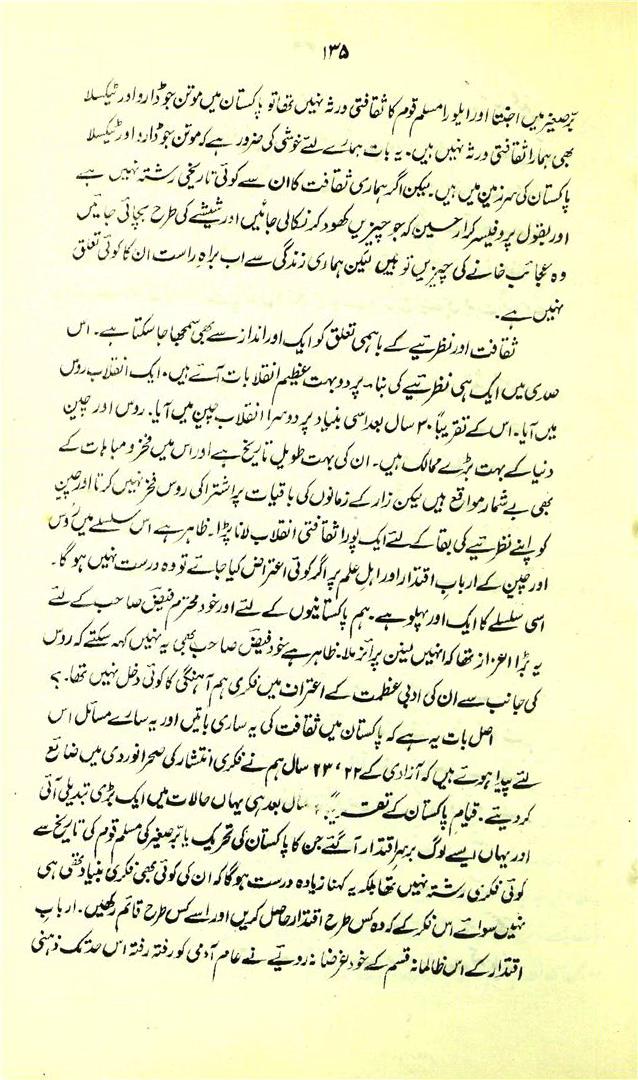 ۱۳۵
برّصغیر میں اجنتا اور ایلورا مسلم قوم کا ثقافتی ورثہ نہیں تھا تو پاکستان میں موئن جو ڈارو اور ٹیکسلا
بھی ہمارا ثقافتی ورثہ نہیں ہیں۔ یہ بات ہمارے لئے خوشی کی ضرور ہے کہ موئن جو ڈارو اور ٹیکسلا
پاکستان کی سرزمین میں ہیں۔ لیکن اگر ہماری ثقافت کا ان سے کوئی تاریخی رشتہ نہیں ہے
اور بقول پروفیسر کرار حسین کہ جو چیزیں کھود کر نکالی جائیں اور شیشے کی طرح بچائی جائیں
وہ عجائب خانے کی چیزیں تو ہیں لیکن ہماری زندگی سے اب براہِ راست ان کا کوئی تعلق
نہیں ہے۔
ثقافت اور نظریّے کے باہمی تعلق کو ایک اور انداز سے بھی سمجھا جا سکتا ہے۔ اس
صدی میں ایک ہی نظریّے کی بناء پر دو بہت عظیم انقلابات آئے ہیں۔ ایک انقلاب روس
میں آیا۔ اس کے تقریباً ۳۰ سال بعد اسی بنیاد پر دوسرا انقلاب چین میں آیا۔ روس اور چین
دنیا کے بہت بڑے ممالک ہیں۔ ان کی بہت طویل تاریخ ہے اور اس میں فخر و مباہات کے
بھی بے شمار مواقع ہیں لیکن زار کے زمانوں کی باقیات پر اشتراکی روس فخر نہیں کرتا اور چین
کو اپنے نظریّے کی بقا کے لئے ایک پورا ثقافتی انقلاب لانا پڑا۔ ظاہر ہے اس سلسلے میں روس
اور چین کے اربابِ اقتدار اور اہلِ علم پر اگر کوئی اعتراض کیا جائے تو وہ درست نہیں ہو گا۔
اسی سلسلے کا ایک اور پہلو ہے۔ ہم پاکستانیوں کے لئے اور خود محترم فیضؔ صاحب کے لئے
یہ بڑا اعزاز تھا کہ انہیں لینن پرائز ملا۔ ظاہر ہے خود فیضؔ صاحب بھی یہ نہیں کہہ سکتے کہ روس
کی جانب سے ان کی ادبی عظمت کے اعتراف میں فکری ہم آہنگی کا کوئی دخل نہیں تھا۔؟
اصل بات یہ ہے کہ پاکستان میں ثقافت کی یہ ساری باتیں اور یہ سارے مسائل اس
لئے پیدا ہوئے ہیں کہ آزادی کے ۲۲، ۲۳ سال ہم نے فکری انتشار کی صحرا نوردی میں ضائع
کر دیئے۔ قیامِ پاکستان کے سال بعد ہی یہاں حالات میں ایک بڑی تبدیلی آئی
اور یہاں ایسے لوگ برسرِ اقتدار آ گئے جن کا پاکستان کی تحریک یا برّصغیر کی مسلم قوم کی تاریخ سے
کوئی فکری رشتہ نہیں تھا بلکہ یہ کہنا زیادہ درست ہوگا کہ ان کی کوئی بھی فکری بنیاد تھی ہی
نہیں سوائے اس فکر کے کہ وہ کس طرح اقتدار حاصل کریں اور اسے کس طرح قائم رکھیں۔ اربابِ
اقتدار کے اس ظالمانہ قسم کے خود غرضانہ رویّے نے عام آدمی کو رفتہ رفتہ اس حد تک ذہنی